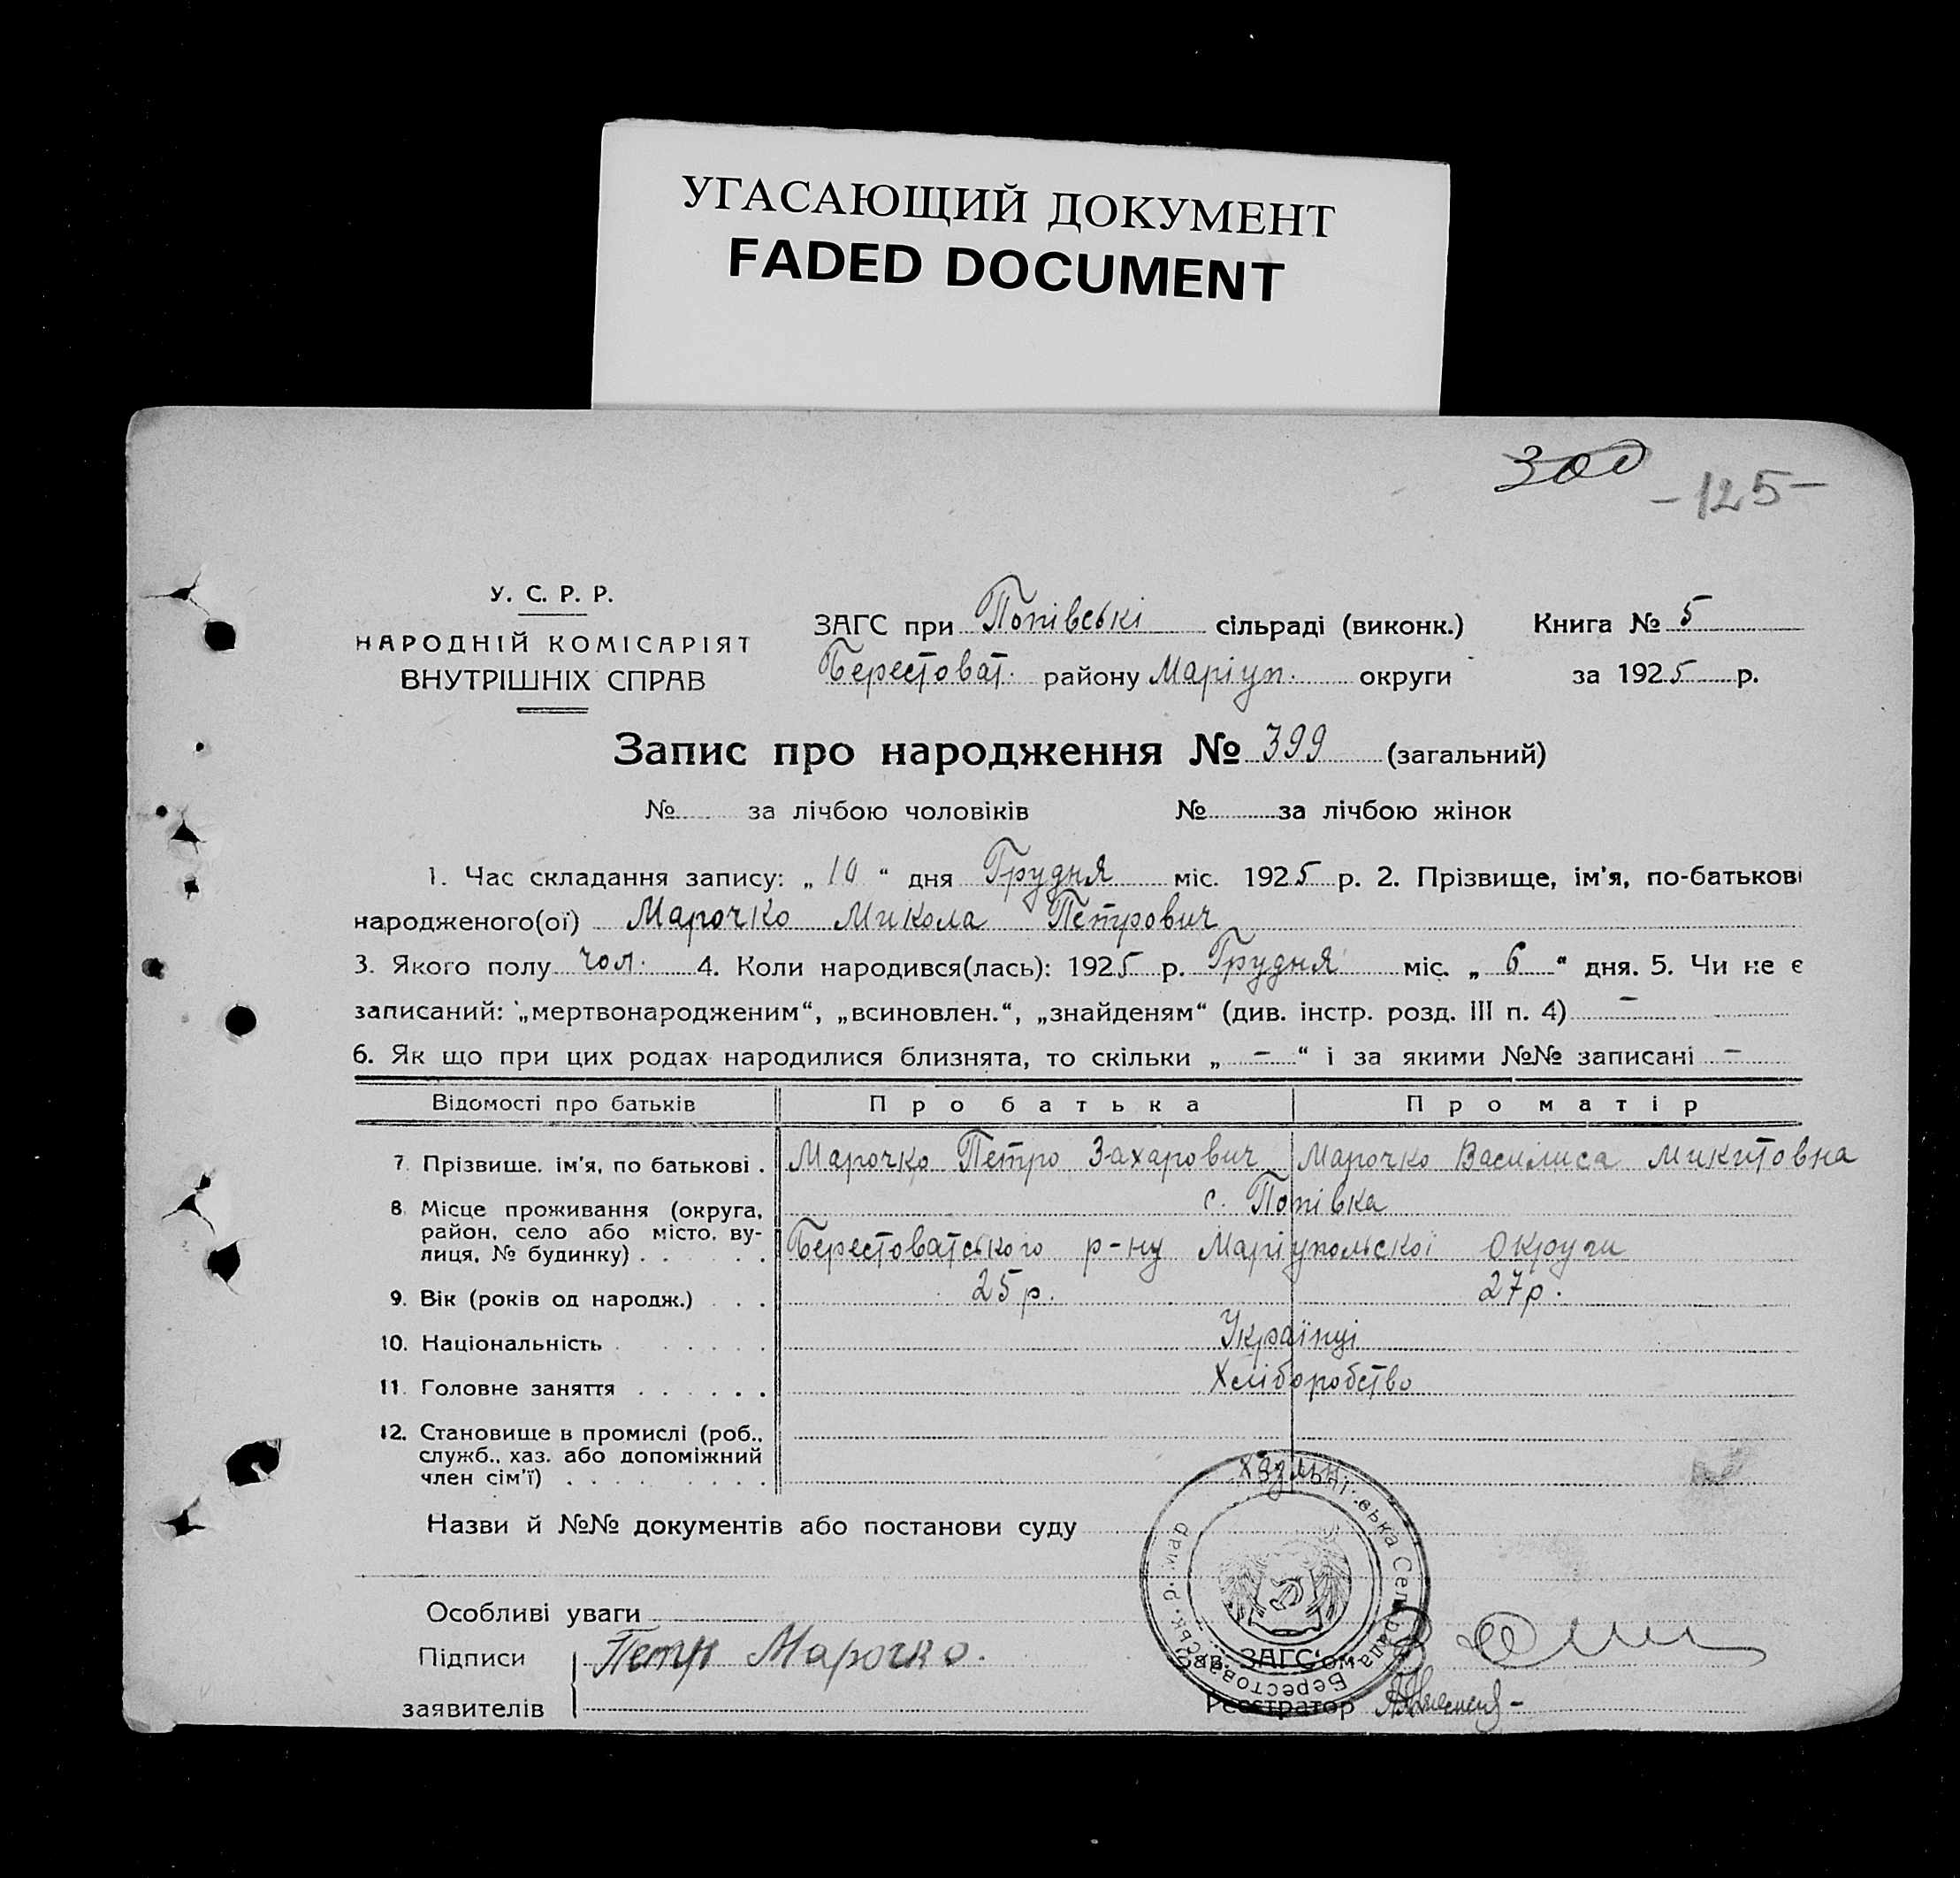 УГАСАЮЩИЙ ДОКУМЕНТ
FADED DOCUMENT
300
-125-
У. С. Р. Р.
НАРОДНІЙ КОМІСАРІЯТ
ВНУТРІШНІХ СПРАВ
ЗАГС при Попівські сільраді (виконк.) Книга № 5
Берестоват. району Маріуп. округи за 1925 р.
Запис про народження № 399 (загальний)
№ за лічбою чоловіків № за лічбою жінок
1. Час складання запису: „10“ дня Грудня міс. 1925 р. 2. Прізвище, ім'я, по-батькові
народженого(ої) Марочко Микола Петрович
3. Якого полу чол. 4. Коли народився(лась): 1925 р. Грудня міс. „6“ дня. 5. Чи не є
записаний: „мертвонародженим“, „всиновлен.“, „знайденям“ (див. інстр. розд. III п. 4) –
6. Як що при цих родах народилися близнята, то скільки „ – “ і за якими №№ записані –
Відомості про батьків Про батька Про матір
7. Прізвище. ім'я, по батькові . Марочко Петро Захарович Марочко Василиса Микитовна
8. Місце проживання (округа, район, село або місто, вулиця, № будинку) . . . . . с. Попівка
Берестоватського р-ну Маріупольскої Округи
9. Вік (років од народж.) . . . 25 р. 27 р.
10. Національність . . . . . . . Українці
11. Головне заняття . . . . . . Хліборобство
12. Становище в промислі (роб.,
служб., хаз. або допоміжний
член сім'ї) . . . . . . . . .
Назви й №№ документів або постанови суду
Особливі уваги
Підписи Петр Марочко.
заявителів
Зав. ЗАГС'ом
Реєстратор